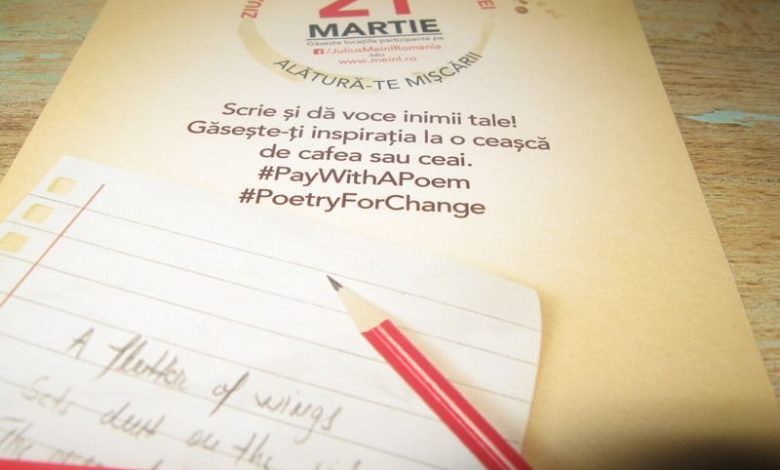 21
MARTIE
Găsește locațiile participante pe
/JuliusMeinlRomania
sau
www.meinl.ro
ALĂTURĂ-TE MIȘCĂRII
Scrie și dă voce inimii tale!
Găsește-ți inspirația la o ceașcă
de cafea sau ceai.
#PayWithAPoem
#PoetryForChange
A flutter of wings
Sets dust on the
The